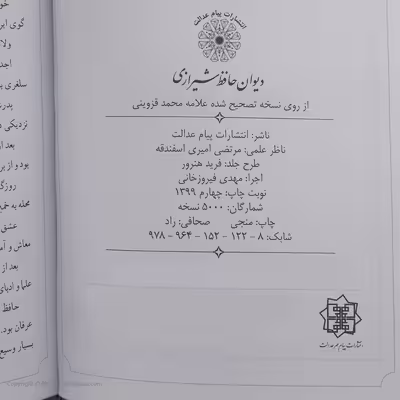 انتشارات پیام عدالت
دیوان حافظ شیرازی
از روی نسخه تصحیح شده علامه محمد قزوینی
ناشر: انتشارات پیام عدالت
ناظر علمی: مرتضی امیری اسفندقه
طرح جلد: فرید هنرور
اجرا: مهدی فیروزخانی
نوبت چاپ: چهارم ۱۳۹۹
شمارگان: ۵۰۰۰ نسخه
چاپ: منجی صحافی: راد
شابک: ۸ - ۱۲۲ - ۱۵۲ - ۹۶۴ - ۹۷۸
انتشارات پیام عدالت
گوی
ولا
اجد
سلغری
پدر
نزدیکی
بعد
بود و از
روزگ
محله به
عشق
معاش و
بعد از
علما و ادبای
حافظ
عرفان بود.
بسیار وسیع